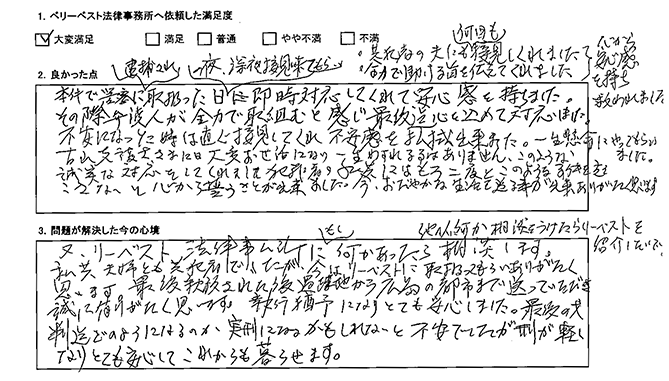 1. ベリーベスト法律事務所へ依頼した満足度
大変満足 満足 普通 やや不満 不満
何回も
共犯者の夫にも接見してくれました
全力で助ける旨を伝えてくれました
だから
安心感
を持ち
救われました
2. 良かった点
逮捕され 夜、深夜接見来てもらい
本件で警察に取扱った日に即時対応してくれて安心感を持ちました。
その際弁護人が全力で取組むと感じ最後迄心を込めて対応しました。
不安になった時は直ぐ接見してくれ不安感を払拭出来ました。一生懸命にやってもらい
ました。
弁護士さまには大変お世話になり一生わすれる事はありません、このような
誠実な対応をしてくれました
二度と
心から誓うことが出来ました。今、おだやかな生活を送る事が出来ありがたく思います
3. 問題が解決した今の心境
もし
他人何か相談をうけたらベリーベストを
紹介したいです
又、ベリーベスト法律事ム所に何かあったら相談します。
私共夫婦とも共犯者でしたが、今はベリーベストに取扱ってもらいありがたく
思います 最後釈放された後
誠に有りがたく思います。執行猶予になりとても安心しました。最後の
判決でどのようになるのか、実刑になるかもしれないと不安でしたが刑が軽く
なりとても安心してこれからも暮らせます。